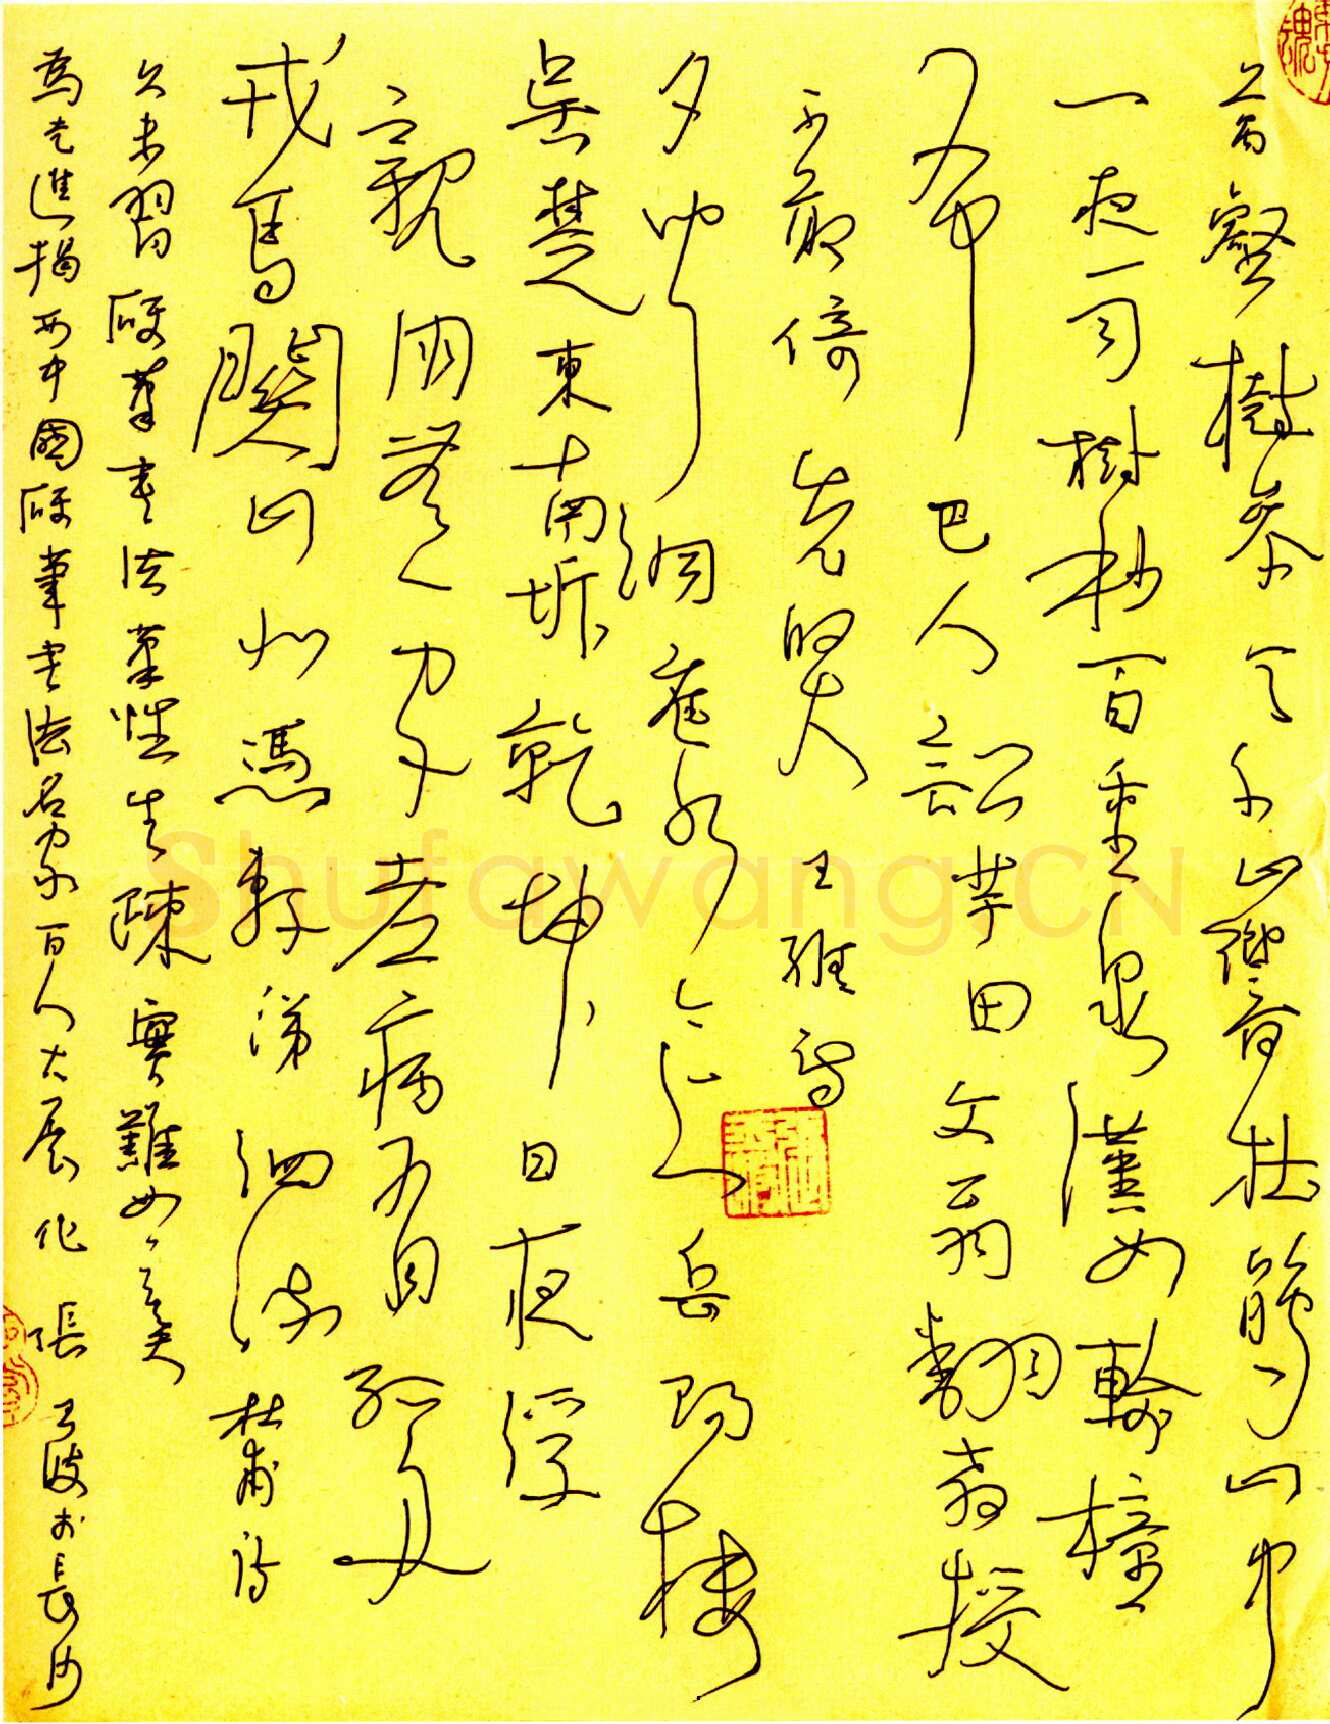 萬壑樹參天千山響杜鵑山中
一夜雨樹杪百重泉漢女輸橦
布巴人訟芋田文翁翻教授
不敢倚先賢 王維詩
昔聞洞庭水今上岳陽樓
吳楚東南坼乾坤日夜浮
親朋無一字老病有孤舟
戎馬關山北憑軒涕泗流 杜甫詩
久未習硬筆書法筆性生疎實難如意矣
為走進揭西中國硬筆書法名家百人大展作 張波於長沙
Shufawang.CN